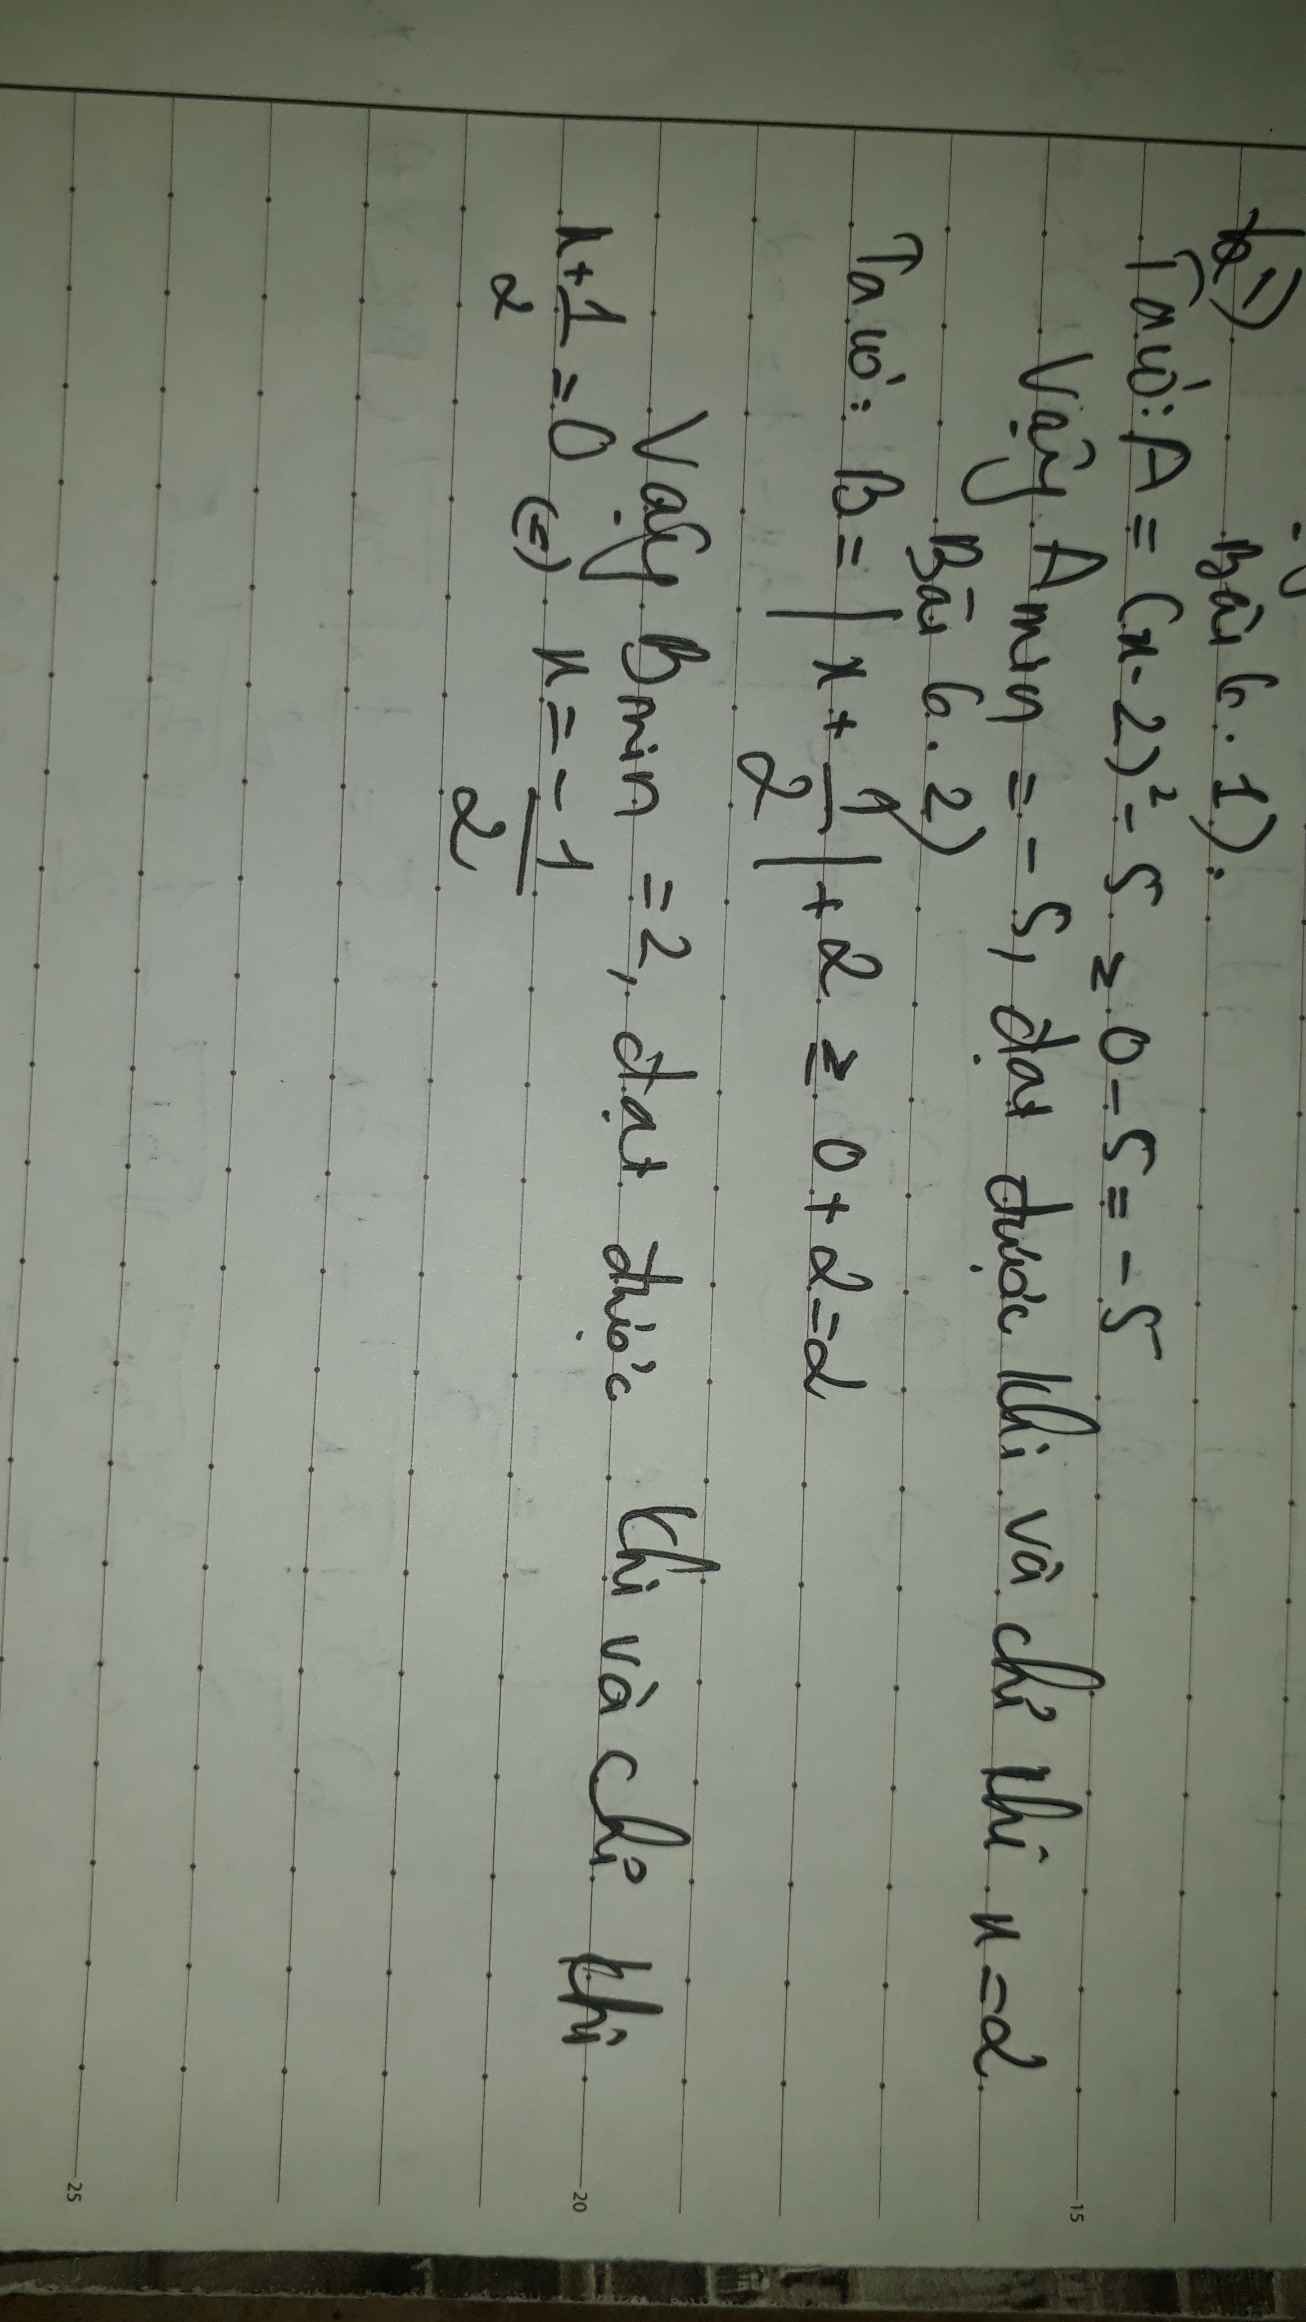 Bài 6.1):
Ta có: A = (x-2)² - 5 ≥ 0 - 5 = - 5
Vậy A min = - 5, đạt được khi và chỉ khi x = 2
Bài 6.2)
Ta có: B = | x + 1/2 | + 2 ≥ 0 + 2 = 2
Vậy B min = 2, đạt được khi và chỉ khi
x + 1/2 = 0 (=) x = -1/2
15
20
25